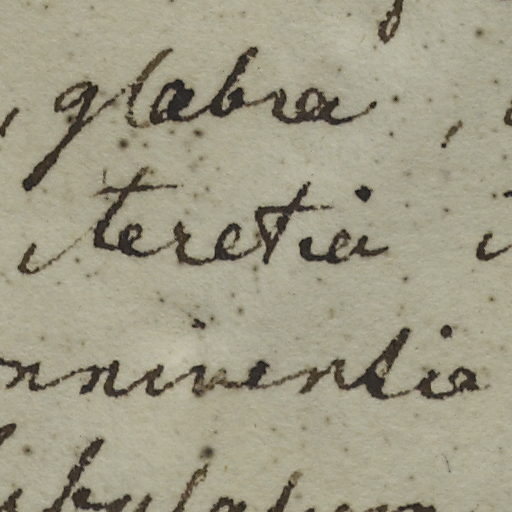 , glabra ,
teretia
nniventia